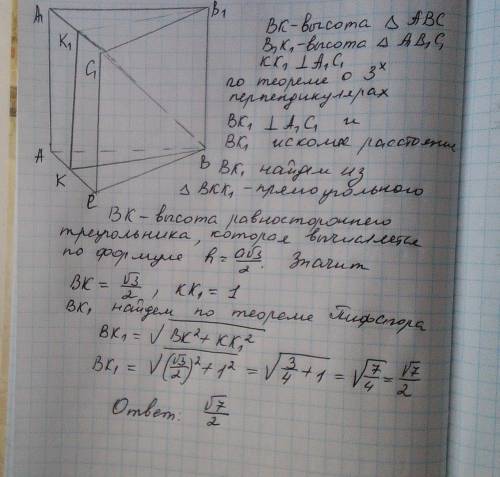 A₁
B₁
K₁
C₁
A
B
K
C
BK - высота △ ABC
B₁K₁ - высота △ A B₁ C₁
KK₁ ⊥ A₁C₁
по теореме о 3ˣ
перпендикулярах
BK₁ ⊥ A₁C₁ и
BK₁ искомое расстояние
BK₁ найдем из
△ BKK₁ - прямоугольного
BK - высота равностороннего
треугольника, которая вычисляется
по формуле h = a√3/2. Значит
BK = √3/2, KK₁ = 1
BK₁ найдем по теореме Пифагора
BK₁ = √(BK² + KK₁²)
BK₁ = √((√3/2)² + 1²) = √(3/4 + 1) = √(7/4) = √7/2
Ответ: √7/2